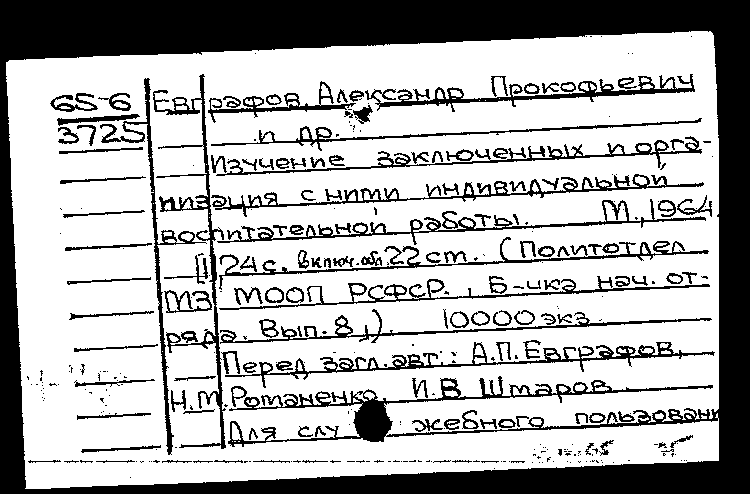 65-6
3725
Евграфов, Александр Прокофьевич
и др.
Изучение заключенных и орга-
низация с ними индивидуальной
воспитательной работы. М., 1964.
24 с. включ. обл. 22 см. (Политотдел
МЗ МООП РСФСР., Б-чка нач. от-
ряда. Вып. 8,). 10000 экз.
Перед загл. авт.: А.П. Евграфов,
Н.М. Романенко, И.В. Шмаров.
Для служебного пользовани